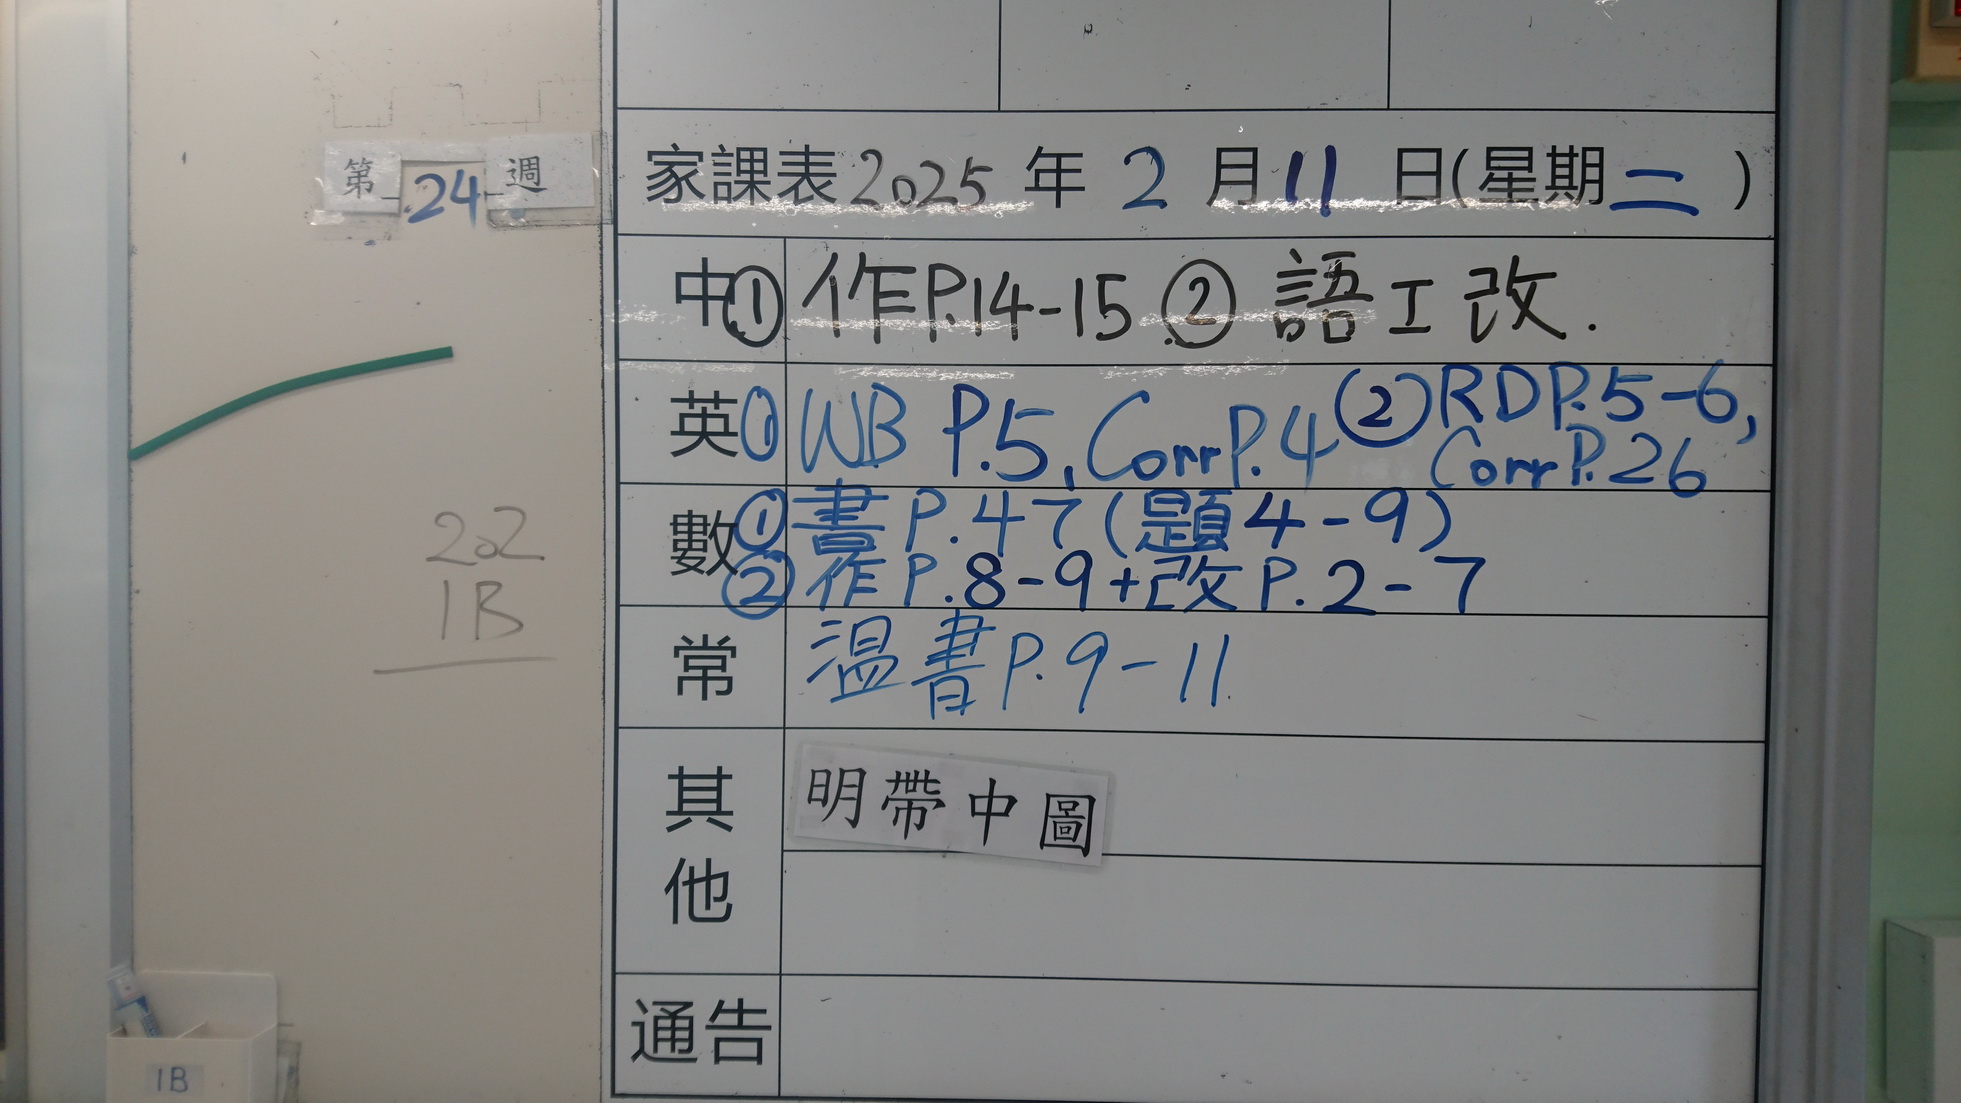 第 24 週
家課表 2025 年 2 月 11 日(星期二)
中 ① 作P.14-15 ② 語工改.
英 ① WB P.5, Corr P.4 ② RD P.5-6,
Corr P.26
數 ① 書 P.47 (題 4-9)
② 作 P.8-9+改 P.2-7
常 溫書 P.9-11
其他 明帶中圖
通告
202
1B
1B